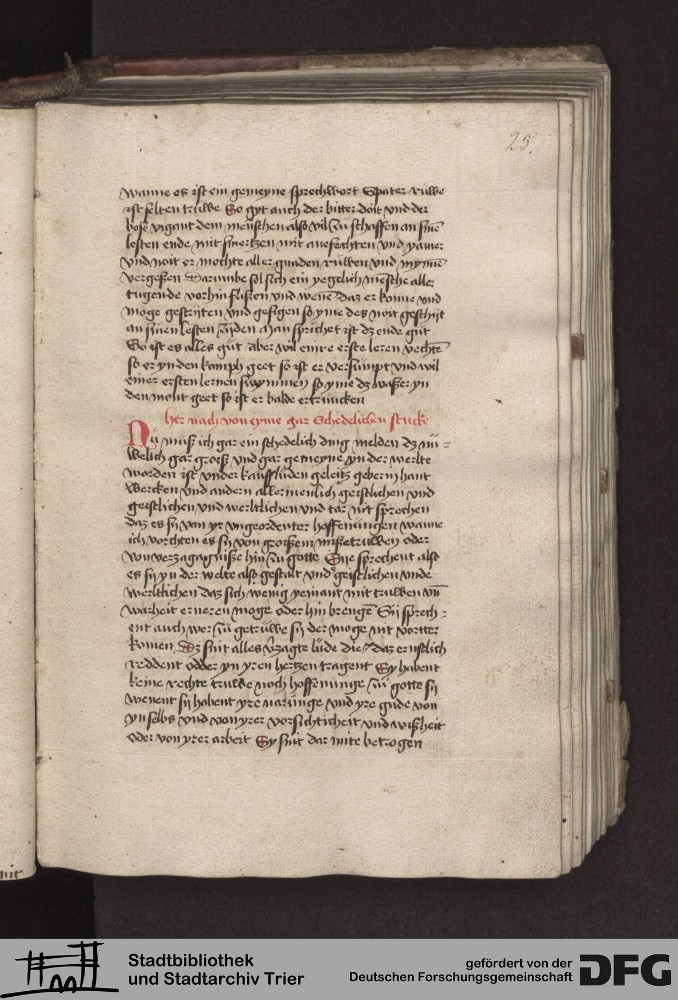 25.
wanne es ist ein gemeyne sprechwort Spater ruwe
ist selten truwe So gyt auch der bitter doit vnd der
bose vigant dem menschen also vil zu schaffen an sine
lesten ende mit smertzen mit anefechten vnd yamer
vnd noit er mochte aller gnaden ruwen vnd
vergessen Darumbe sol sich ein yegelich mensche aller
tugende vorhin flissen vnd wene daz er konne vnd
moge gestryten vnd gesigen so yme des noit geschyt
an sinen lesten zyden Man sprichet ist dz ende gut
So ist es alles gut aber wil einre erste leren vechten
so er yn den kamph geet so ist er versumpt vnd wil
einer ersten lernen swymmen so yme dz wasser yn
den mont geet so ist er balde ertruncken
her nach von eyme gar Schedelichen stucke
Nu muß ich gar ein schedelich ding melden dz
welich gar groeß vnd gar gemeyne yn der werlte
worden ist vnder kaufflüden geleitz gebern hant
wercken vnd andern allermenlich geistlichen vnd
geistlichen vnd werltlichen vnd tar nit sprechen
daz es sy von yt vngeordenter hoffenungen wanne
ich vorchten es sy von großem missetruwen oder
von verzagagnisse hin zu gotte Sie sprechent also
es sy yn der welte also gestalt vnder geistlichen vnde
werltlichen daz sich wenig yemant mit truwen vn
warheit erneren moge oder hin brengen Sy sprech-
ent auch wer zu getruwe sy der moge nit vortter
komen Dz sint alles verzagte lude die daz ernstlich
reddent odder yn yren hertzen tragent Sy habent
keine rechte truwe noch hoffenunge zu gotte sy
wenent sy habent yre narunge vnd yre gude von
yn selbs vnd von yrer vorsichticheit vnd wißheit
oder von yrer arbeit Sy sint dar mite betrogen
Stadtbibliothek
und Stadtarchiv Trier
gefördert von der
Deutschen Forschungsgemeinschaft
DFG